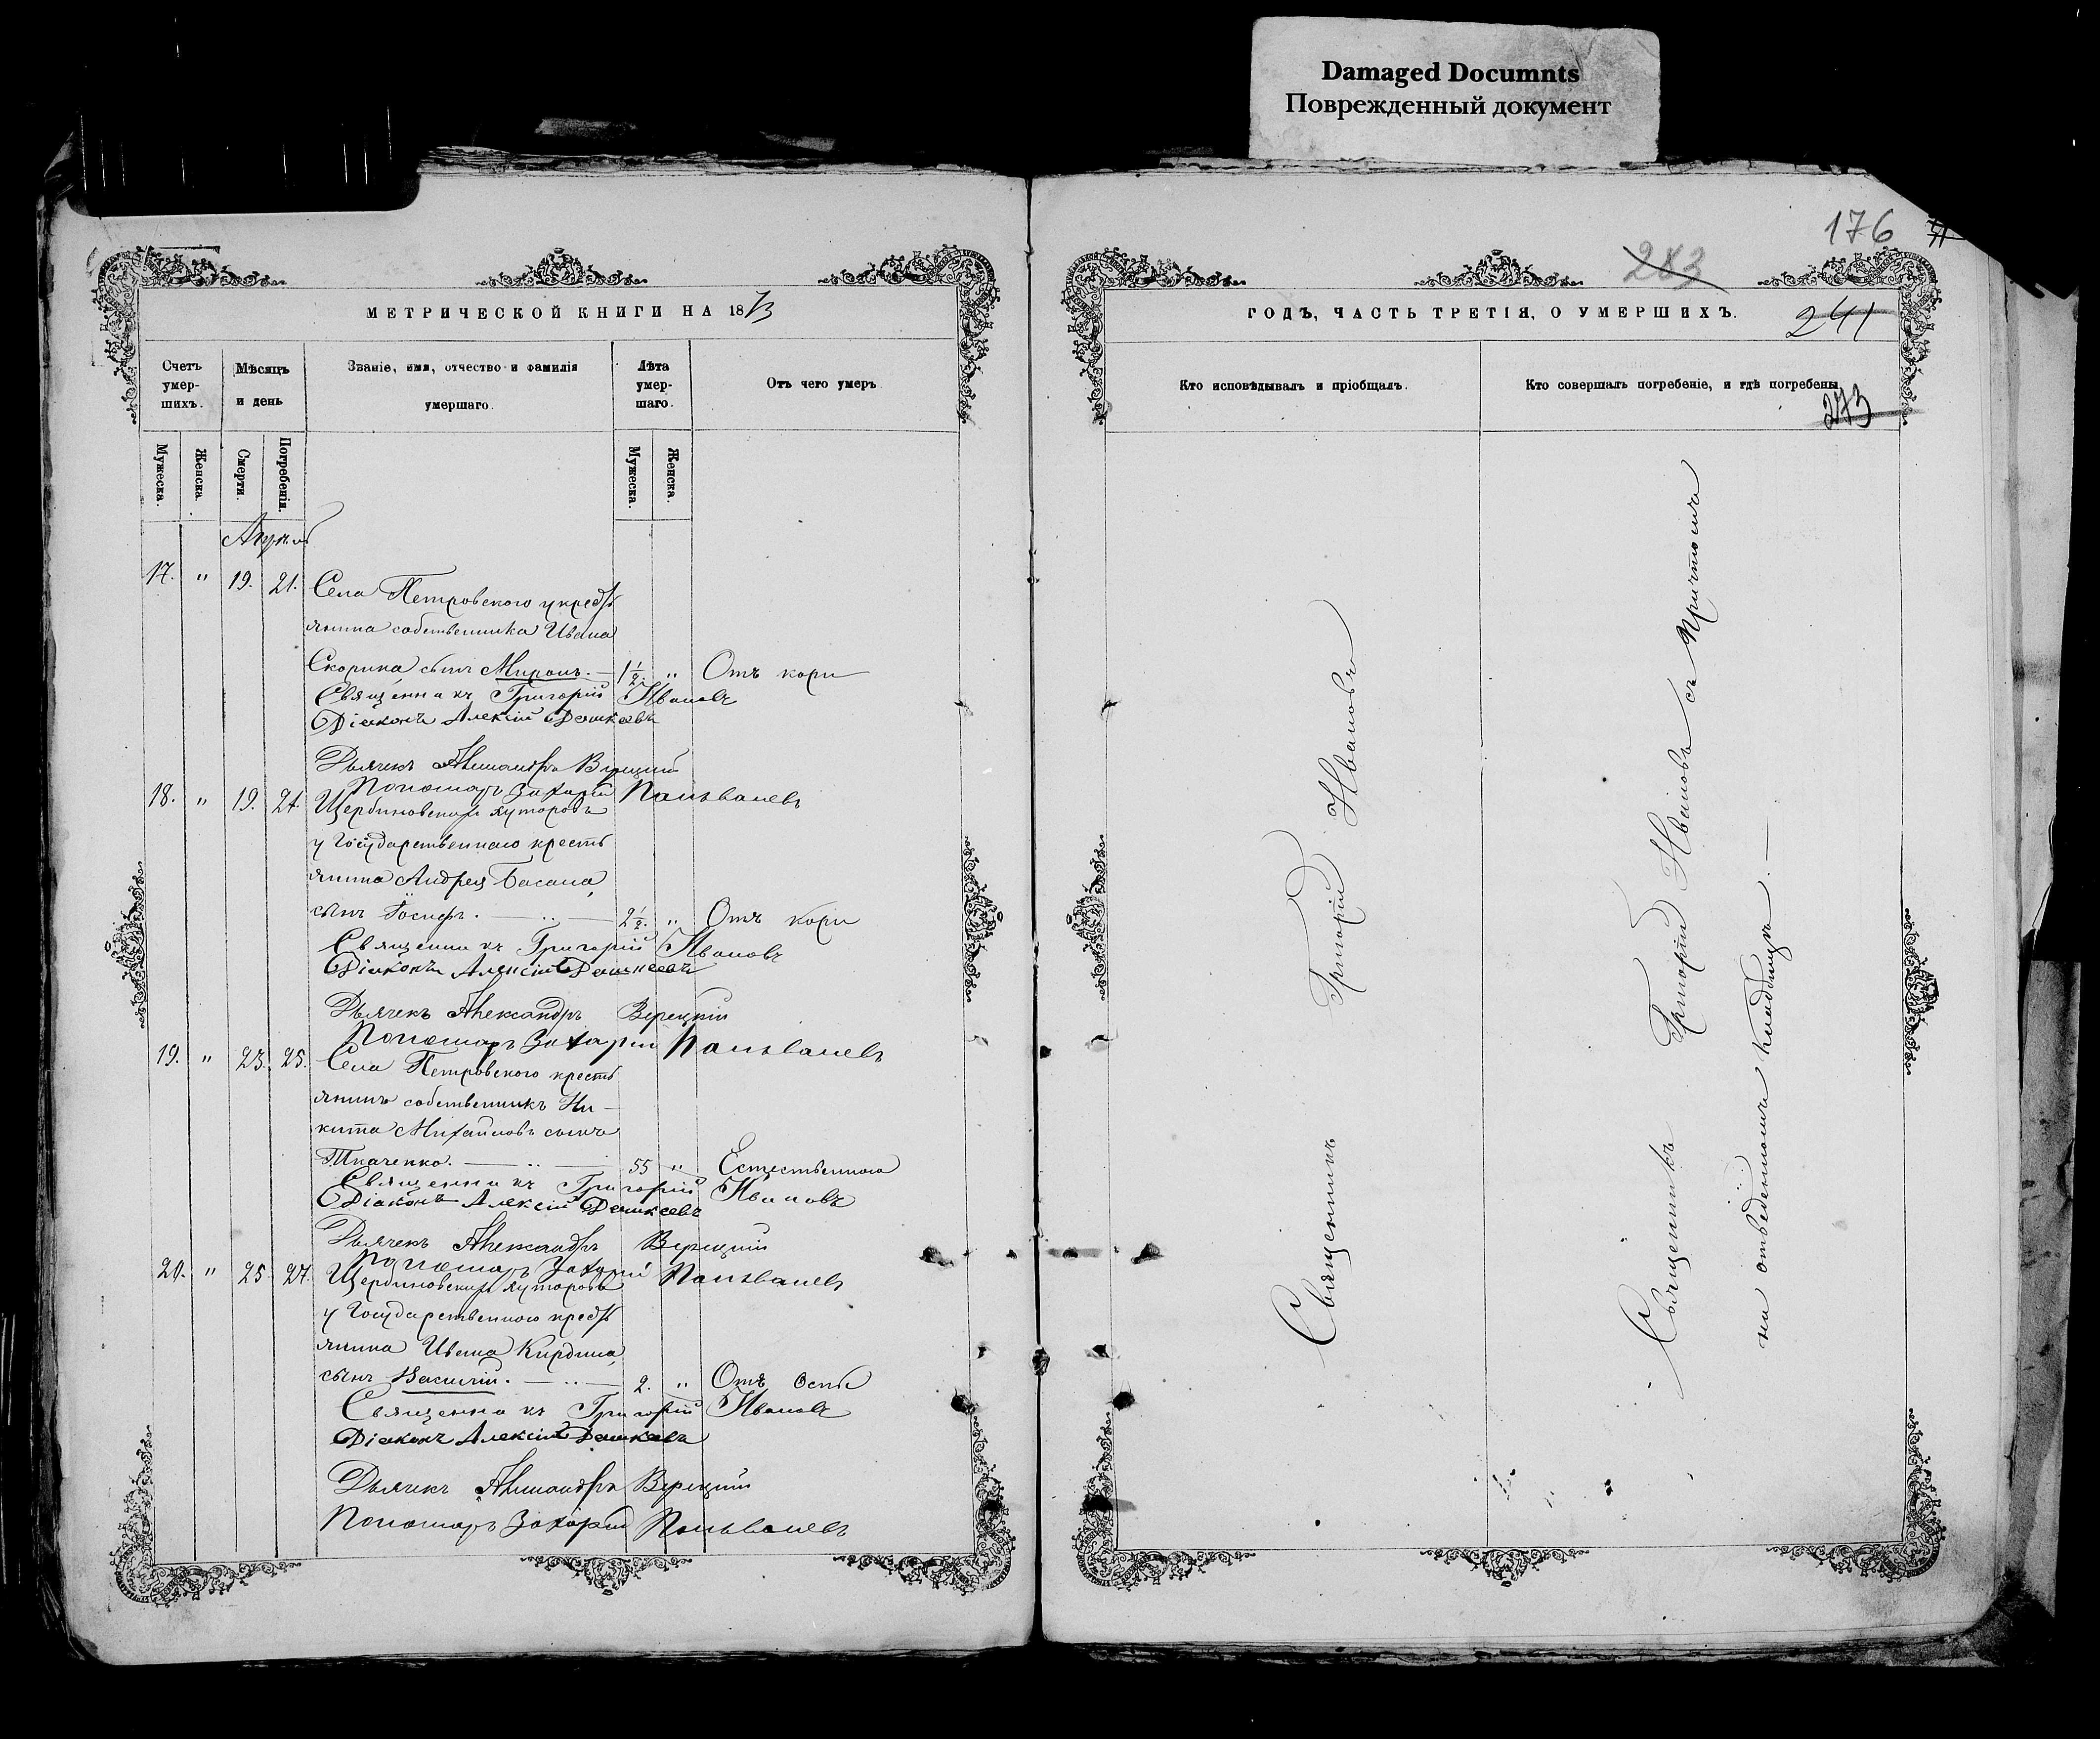 Damaged Documnts
Поврежденный документ
176
283
МЕТРИЧЕСКОЙ КНИГИ НА 1873
Счетъ умер-шихъ.
Мѣсяцъ и день
Званіе, имя, отчество и фамилія умершаго.
Лѣта умер-шаго.
Отъ чего умеръ
Мужеска.
Женска.
Смерти.
Погребенія.
Мужеска.
Женска.
Апрѣль
17. " 19. 21. Села Петровского у крестъ
янина собственника Ивана
Скорика сынъ Миронъ. — 1 1/2. " Отъ кори
Священникъ Григорій Ивановъ
Діаконъ Алексій Дашкеевъ
Дьячекъ Александръ Верецкій
Пономарь Захарій
18. " 19. 21. Щербиновскихъ хуторовъ
у Государственнаго кресть
янина Андрея Басана,
сынъ Іосифъ. — 2 1/2. " Отъ кори
Священникъ Григорій Ивановъ
Діаконъ Алексій Дашкеевъ
Дьячекъ Александръ Верецкій
Пономарь Захарій
19. " 23. 25. Села Петровского кресть
янинъ собственникъ Ни-
кита Михайловъ сынъ
Ткаченко. — 55 " Естественною
Священникъ Григорій Ивановъ
Діаконъ Алексій Дашкеевъ
Дьячекъ Александръ Верецкій
Пономарь Захарій
20. " 25. 27. Щербиновскихъ хуторовъ
у Государственного кресть
янина Ивана Кирдина,
сынъ Василій. — 2. " Отъ оспы
Священникъ Григорій Ивановъ
Діаконъ Алексій Дашкеевъ
Дьячекъ Александръ Верецкій
Пономарь Захарій
ГОДЪ, ЧАСТЬ ТРЕТІЯ, О УМЕРШИХЪ.
241
Кто исповѣдывалъ и пріобщалъ.
Кто совершалъ погребеніе, и гдѣ погребены
273
Священникъ Григорій Ивановъ
Священникъ Григорій Ивановъ съ Причтомъ
на отведенномъ кладбищѣ. —